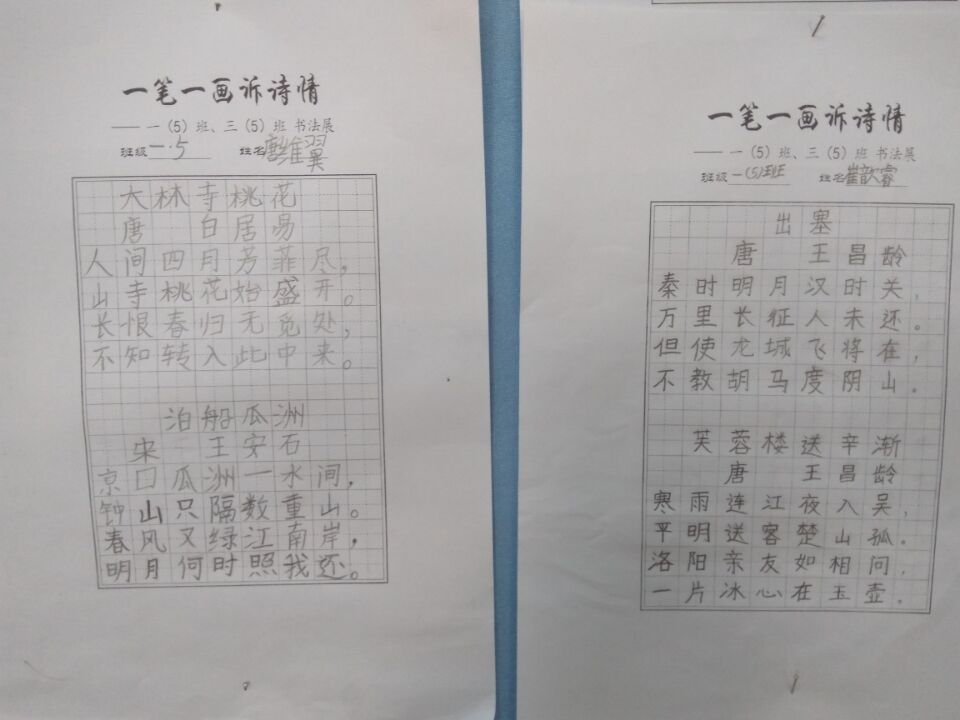 一笔一画诉诗情
—— 一（5）班、三（5）班 书法展
班级 一·5 姓名 唐维翼
大林寺桃花
唐 白居易
人间四月芳菲尽，
山寺桃花始盛开。
长恨春归无觅处，
不知转入此中来。
泊船瓜洲
宋 王安石
京口瓜洲一水间，
钟山只隔数重山。
春风又绿江南岸，
明月何时照我还。
一笔一画诉诗情
—— 一（5）班、三（5）班 书法展
班级 一（5）班 姓名 崔歆睿
出塞
唐 王昌龄
秦时明月汉时关，
万里长征人未还。
但使龙城飞将在，
不教胡马度阴山。
芙蓉楼送辛渐
唐 王昌龄
寒雨连江夜入吴，
平明送客楚山孤。
洛阳亲友如相问，
一片冰心在玉壶。